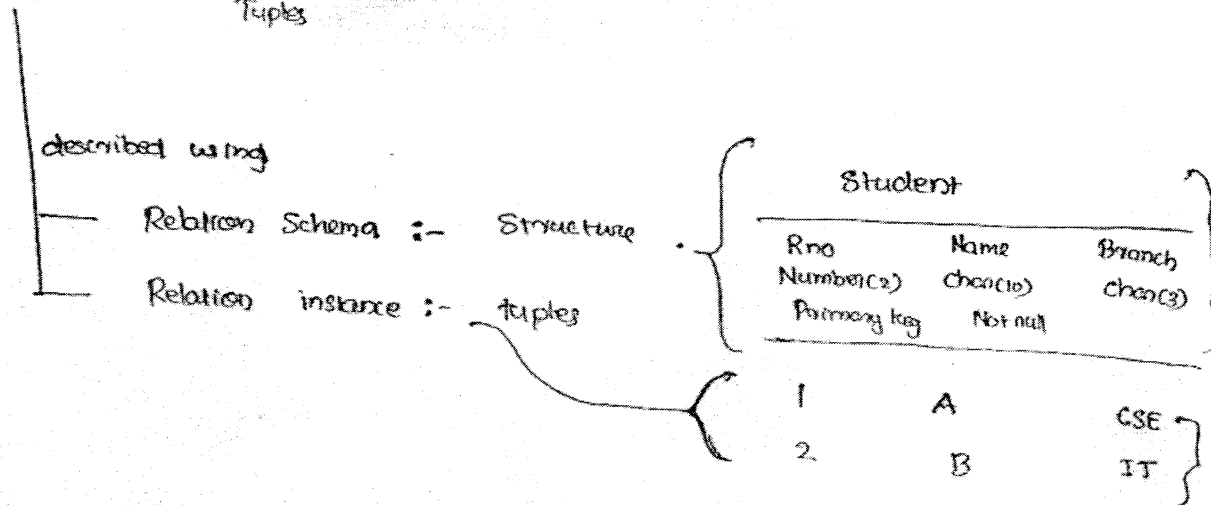 Tuples
described using
Relation Schema :- Structure
Relation instance :- tuples
Student
Rno Name Branch
Number(2) Char(10) Char(3)
Primary key Not null
1 A CSE
2 B IT